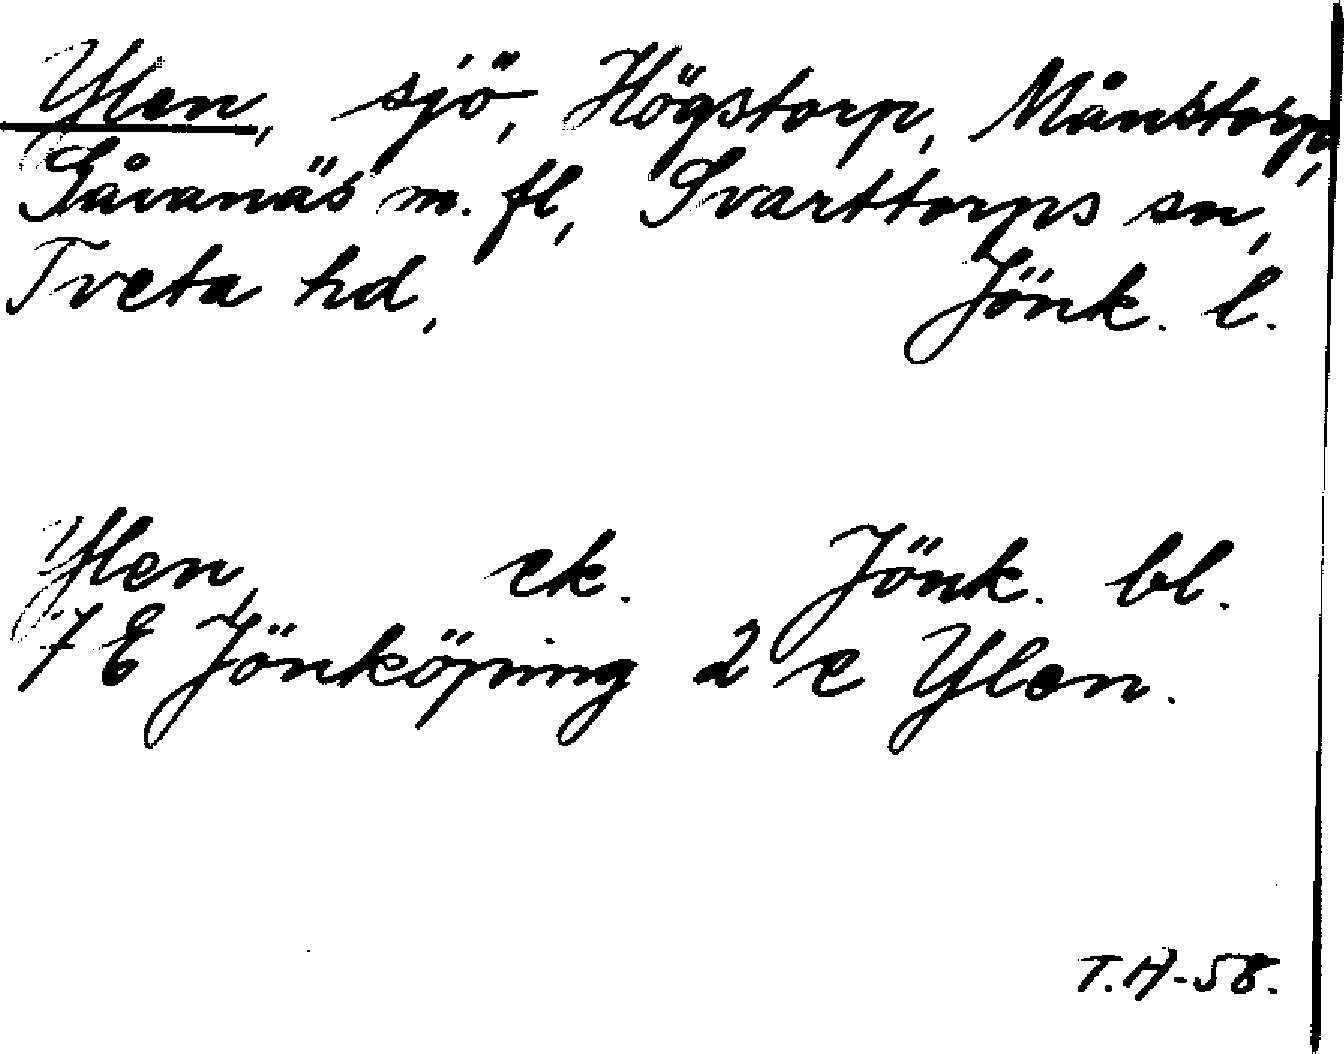 Ylen, sjö, Högstorp, Månstorp,
Såvanäs m. fl, Svarttorps sn,
Tveta hd, Jönk. l.
Ylen, ek. Jönk. bl.
7 E Jönköping 2 e Ylen.
T.H-58.